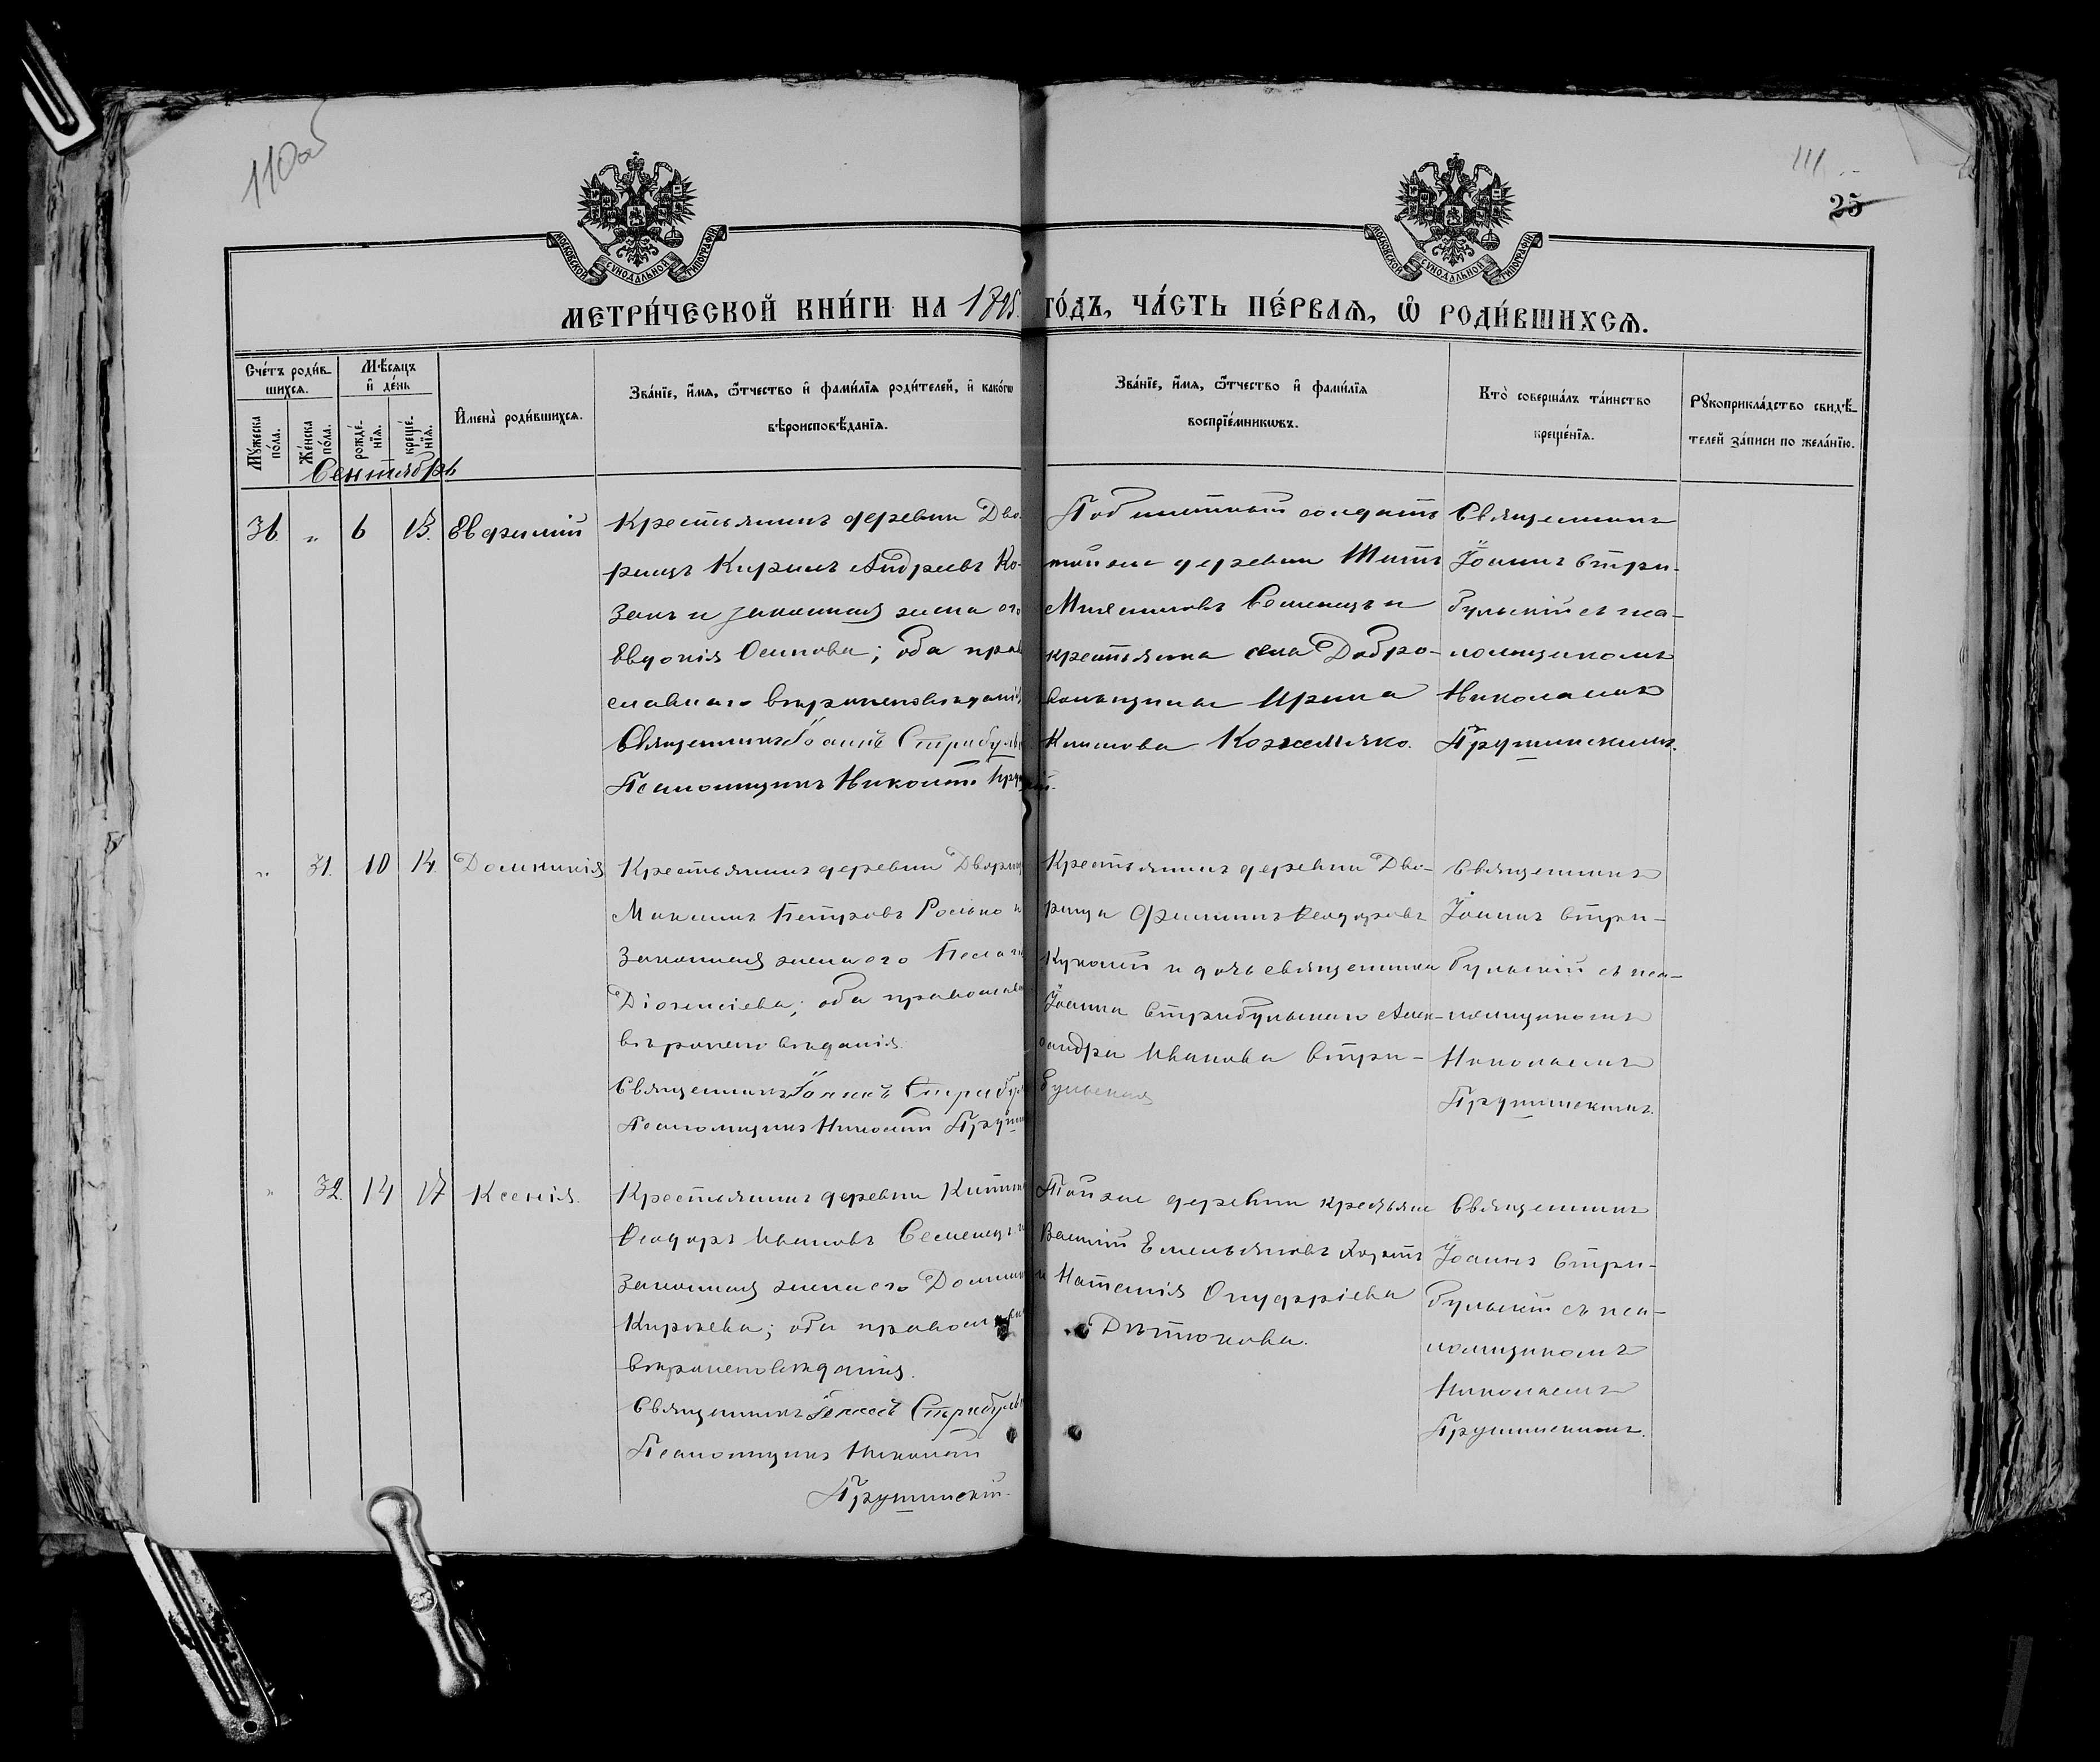 110об
111
25
МОСКОВСКОЙ СѴНОДАЛЬНОЙ ТИПОГРАФІИ
МОСКОВСКОЙ СѴНОДАЛЬНОЙ ТИПОГРАФІИ
МЕТРИ́ЧЕСКОЙ КНИ́ГИ НА 1895 ГО́ДЪ, ЧА́СТЬ ПЕ́РВАЯ, Ѡ РОДИ́ВШИХСЯ.
Сче́тъ роди́в-
шихся.
Мꙋ́жеска по́ла.
Же́нска по́ла.
Мѣ́сяцъ
и де́нь
рожде́-
нїя.
креще́-
нїя.
И҆мена̀ роди́вшихся.
Зва́нїе, и҆́мя, ѻ҆́тчество и҆ фами́лїя роди́телей, и҆ како́гѡ
вѣроисповѣ́данїя.
Зва́нїе, и҆́мя, ѻ҆́тчество и҆ фами́лїя
воспрїе́мникѡвъ.
Кто̀ соверша́лъ та́инство
креще́нїя.
Рꙋкоприкла́дство свидѣ́-
телей за́писи по жела́нїю.
Сентябрь
36. " 6 13. Евфимій
Крестьянинъ деревни Дво-
рищъ Кирилъ Андреевъ Ко-
закъ и законная жена его
Евдокія Осипова; оба право
славнаго вѣроисповѣданія
Священникъ Іоаннъ Стрибуль
Псаломщикъ Николай Пру
солдатъ
той же деревни
Семенецъ и
крестьянка села Добро-
Ирина
Кожемяко.
Священникъ
Іоаннъ Стри-
бульскій съ пса-
ломщикомъ
Николаемъ
Прушинскимъ.
" 31. 10 14. Домникія
Крестьянинъ деревни Дворищ
Максимъ Петровъ Росько и
законная жена его Пелагія
Діонисіева; оба православ
вѣроисповѣданія.
Священникъ Іоаннъ Стрибул
Псаломщикъ Николай Пруши
Крестьянинъ деревни Дво-
рища Филиппъ Феодоровъ
и дочь священника
Іоанна Стрибульскаго Алек-
сандра Иванова Стри-
бульская
Священникъ
Іоаннъ Стри-
бульскій съ пса-
ломщикомъ
Николаемъ
Прушинскимъ.
" 32. 14 17 Ксенія.
Крестьянинъ деревни
Феодоръ Ивановъ Семенецъ и
законная жена его
оба православ
вѣроисповѣданія.
Священникъ Іоаннъ Стрибуль
Псаломщикъ Николай
Прушинскій.
Той же деревни крестьяне
Василій Емельяновъ
и Наталія Онуфріева
Священникъ
Іоаннъ Стри-
бульскій съ пса-
ломщикомъ
Николаемъ
Прушинскимъ.